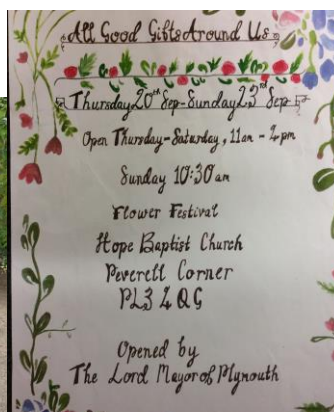 All Good Gifts Around Us
Thursday 20th Sep-Sunday 23rd Sep
Open Thursday-Saturday, 11am - 4pm
Sunday 10:30am
Flower Festival
Hope Baptist Church
Peverell Corner
PL3 4QG
Opened by
The Lord Mayor of Plymouth